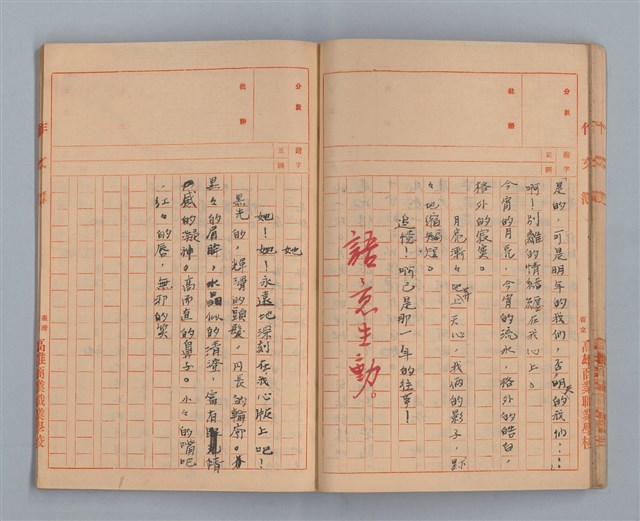 分數
批語
錯字
正誤
「是的,可是明年的我們,否,明天的我們……
啊!別離的情緒纏在我心上。
今宵的月亮,今宵的流水,格外的皓白,
格外的寂寞。
月亮漸々地昇上天心,我倆的影子,跡
々地縮短。
追憶!啊已是那一年的往事!
語意生動。
省立高雄商業職業學校
作文簿
分數
批語
錯字
正誤
她
她!她!永遠地深刻在我心版上吧!
黑光的,輝滑的頭髮,円長的輪廓。
黑々的眉睫,水晶似的清澄,富有情
感的凝神。高而直的鼻子。小々的嘴吧
,紅々的唇,無邪的笑
作文簿
高雄商業職業學校